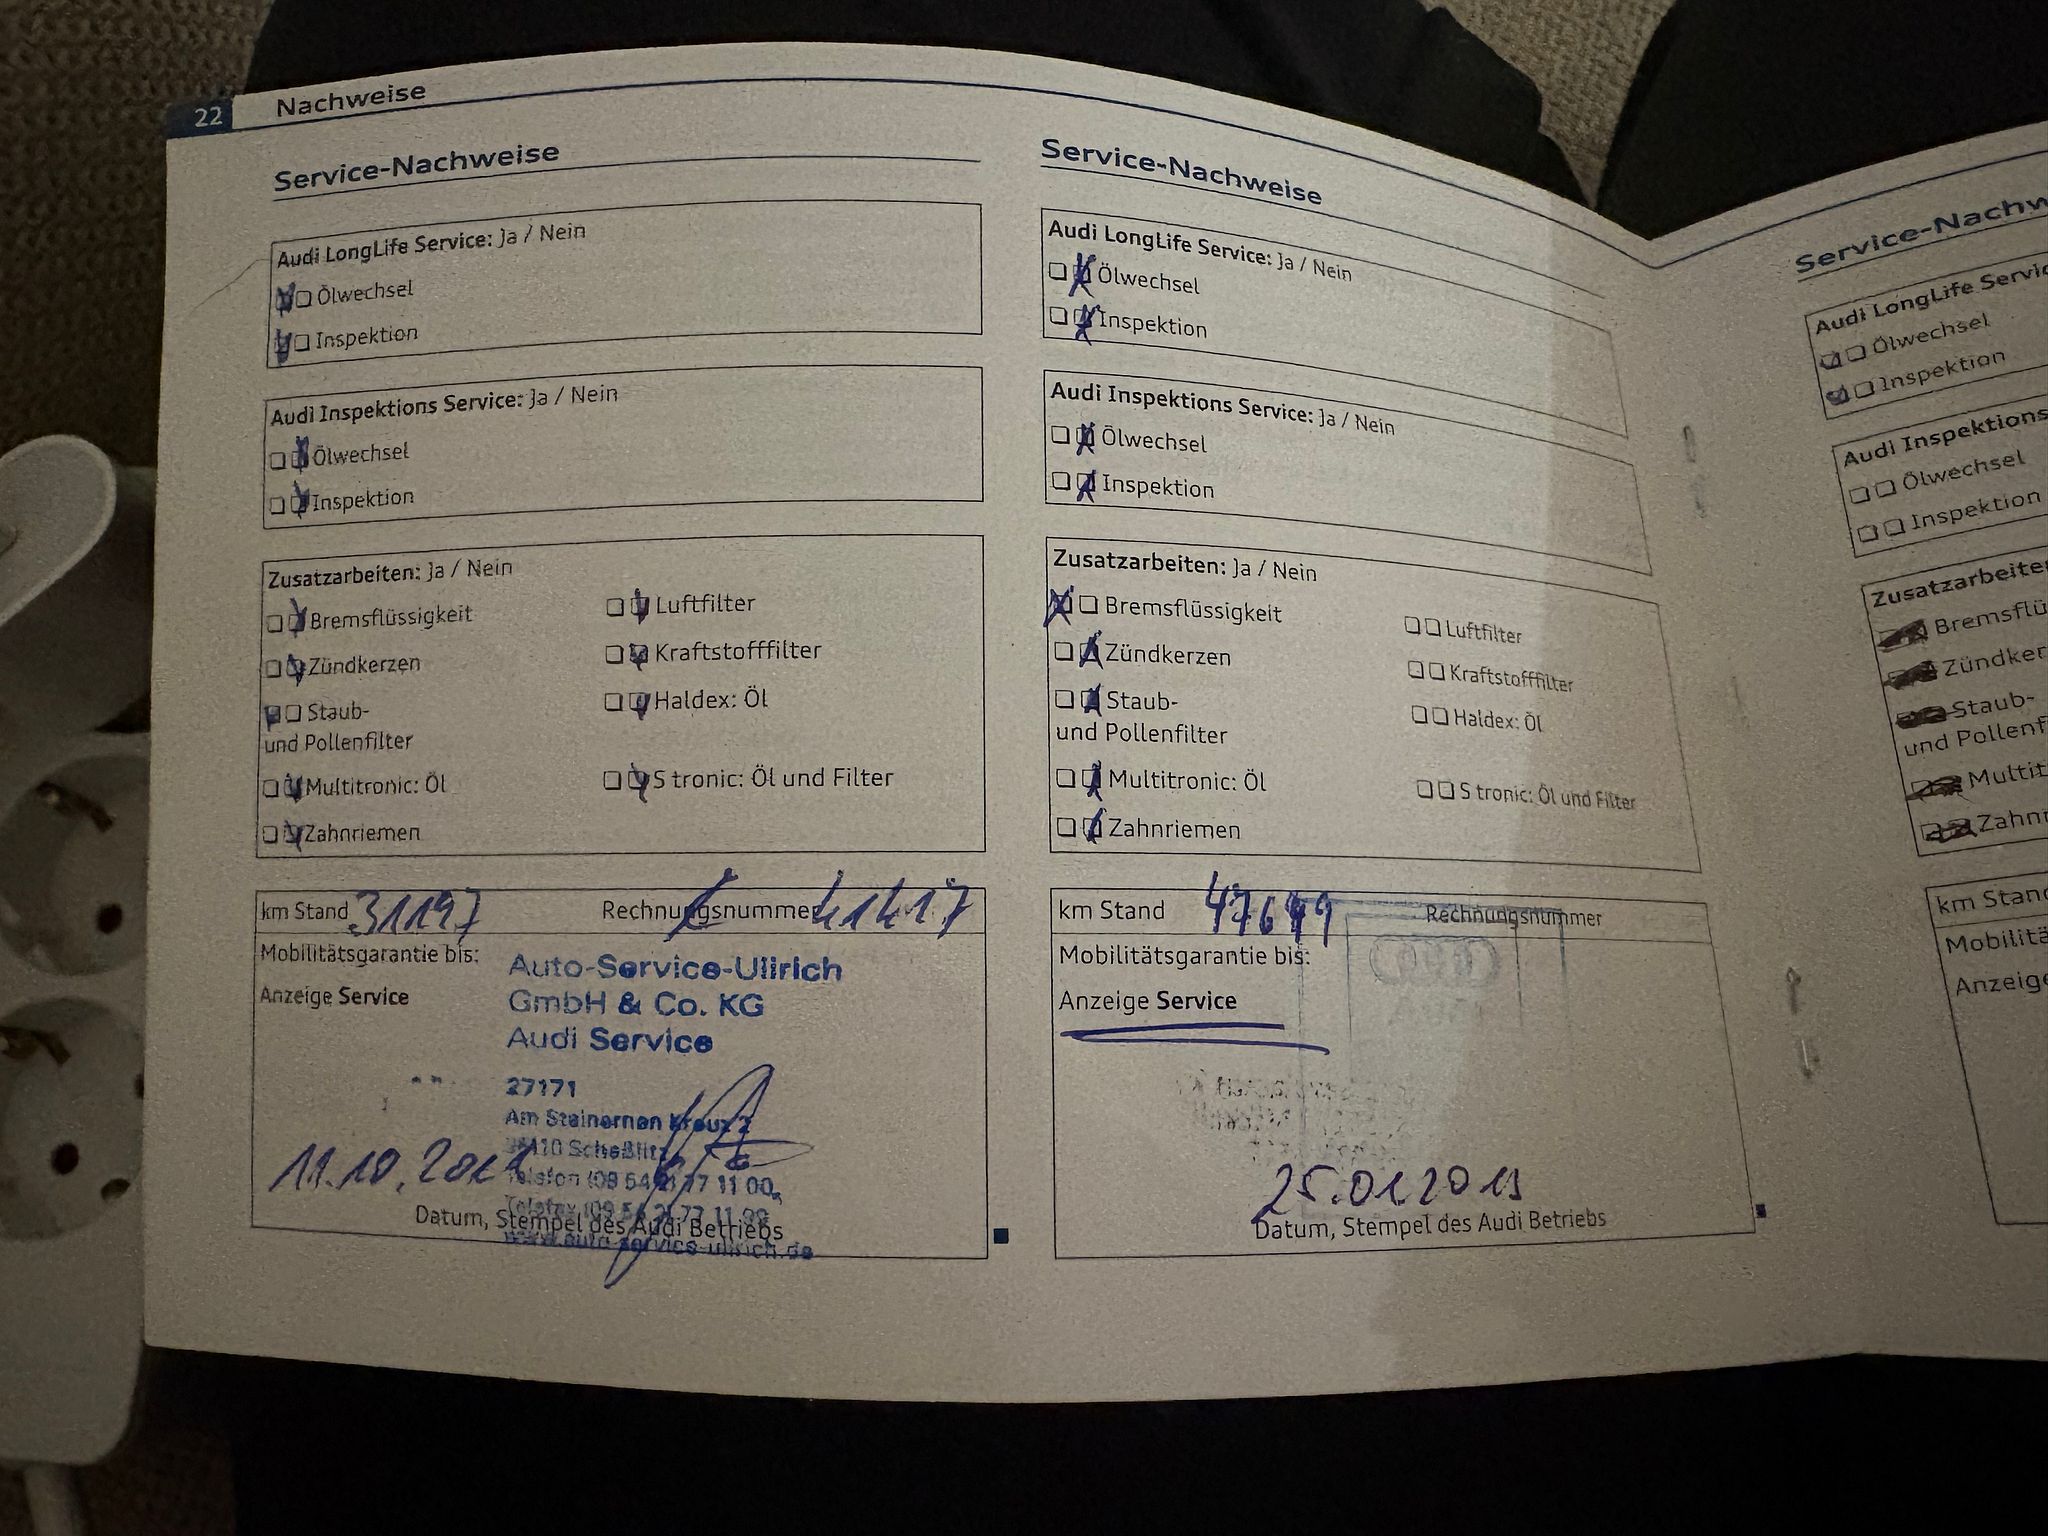 22 Nachweise
Service-Nachweise
Audi LongLife Service: Ja / Nein
Ölwechsel
Inspektion
Audi Inspektions Service: Ja / Nein
Ölwechsel
Inspektion
Zusatzarbeiten: Ja / Nein
Bremsflüssigkeit
Luftfilter
Zündkerzen
Kraftstofffilter
Staub-
und Pollenfilter
Haldex: Öl
Multitronic: Öl
S tronic: Öl und Filter
Zahnriemen
km Stand 31197
Rechnungsnummer 41417
Mobilitätsgarantie bis:
Anzeige Service
Auto-Service-Ullrich
GmbH & Co. KG
Audi Service
27171
Am Steinernen Kreuz 2
Scheßlitz
11.10.
www.auto-service-ullrich.de
Datum, Stempel des Audi Betriebs
Service-Nachweise
Audi LongLife Service: Ja / Nein
Ölwechsel
Inspektion
Audi Inspektions Service: Ja / Nein
Ölwechsel
Inspektion
Zusatzarbeiten: Ja / Nein
Bremsflüssigkeit
Luftfilter
Zündkerzen
Kraftstofffilter
Staub-
und Pollenfilter
Haldex: Öl
Multitronic: Öl
S tronic: Öl und Filter
Zahnriemen
km Stand
Rechnungsnummer
Mobilitätsgarantie bis:
Anzeige Service
25.01.2013
Datum, Stempel des Audi Betriebs
Service-Nachw
Audi LongLife Servic
Ölwechsel
Inspektion
Audi Inspektions
Ölwechsel
Inspektion
Zusatzarbeite
Bremsflü
Zündker
Staub-
und Pollenf
Multit
Zahnr
km Stan
Mobilitä
Anzeig